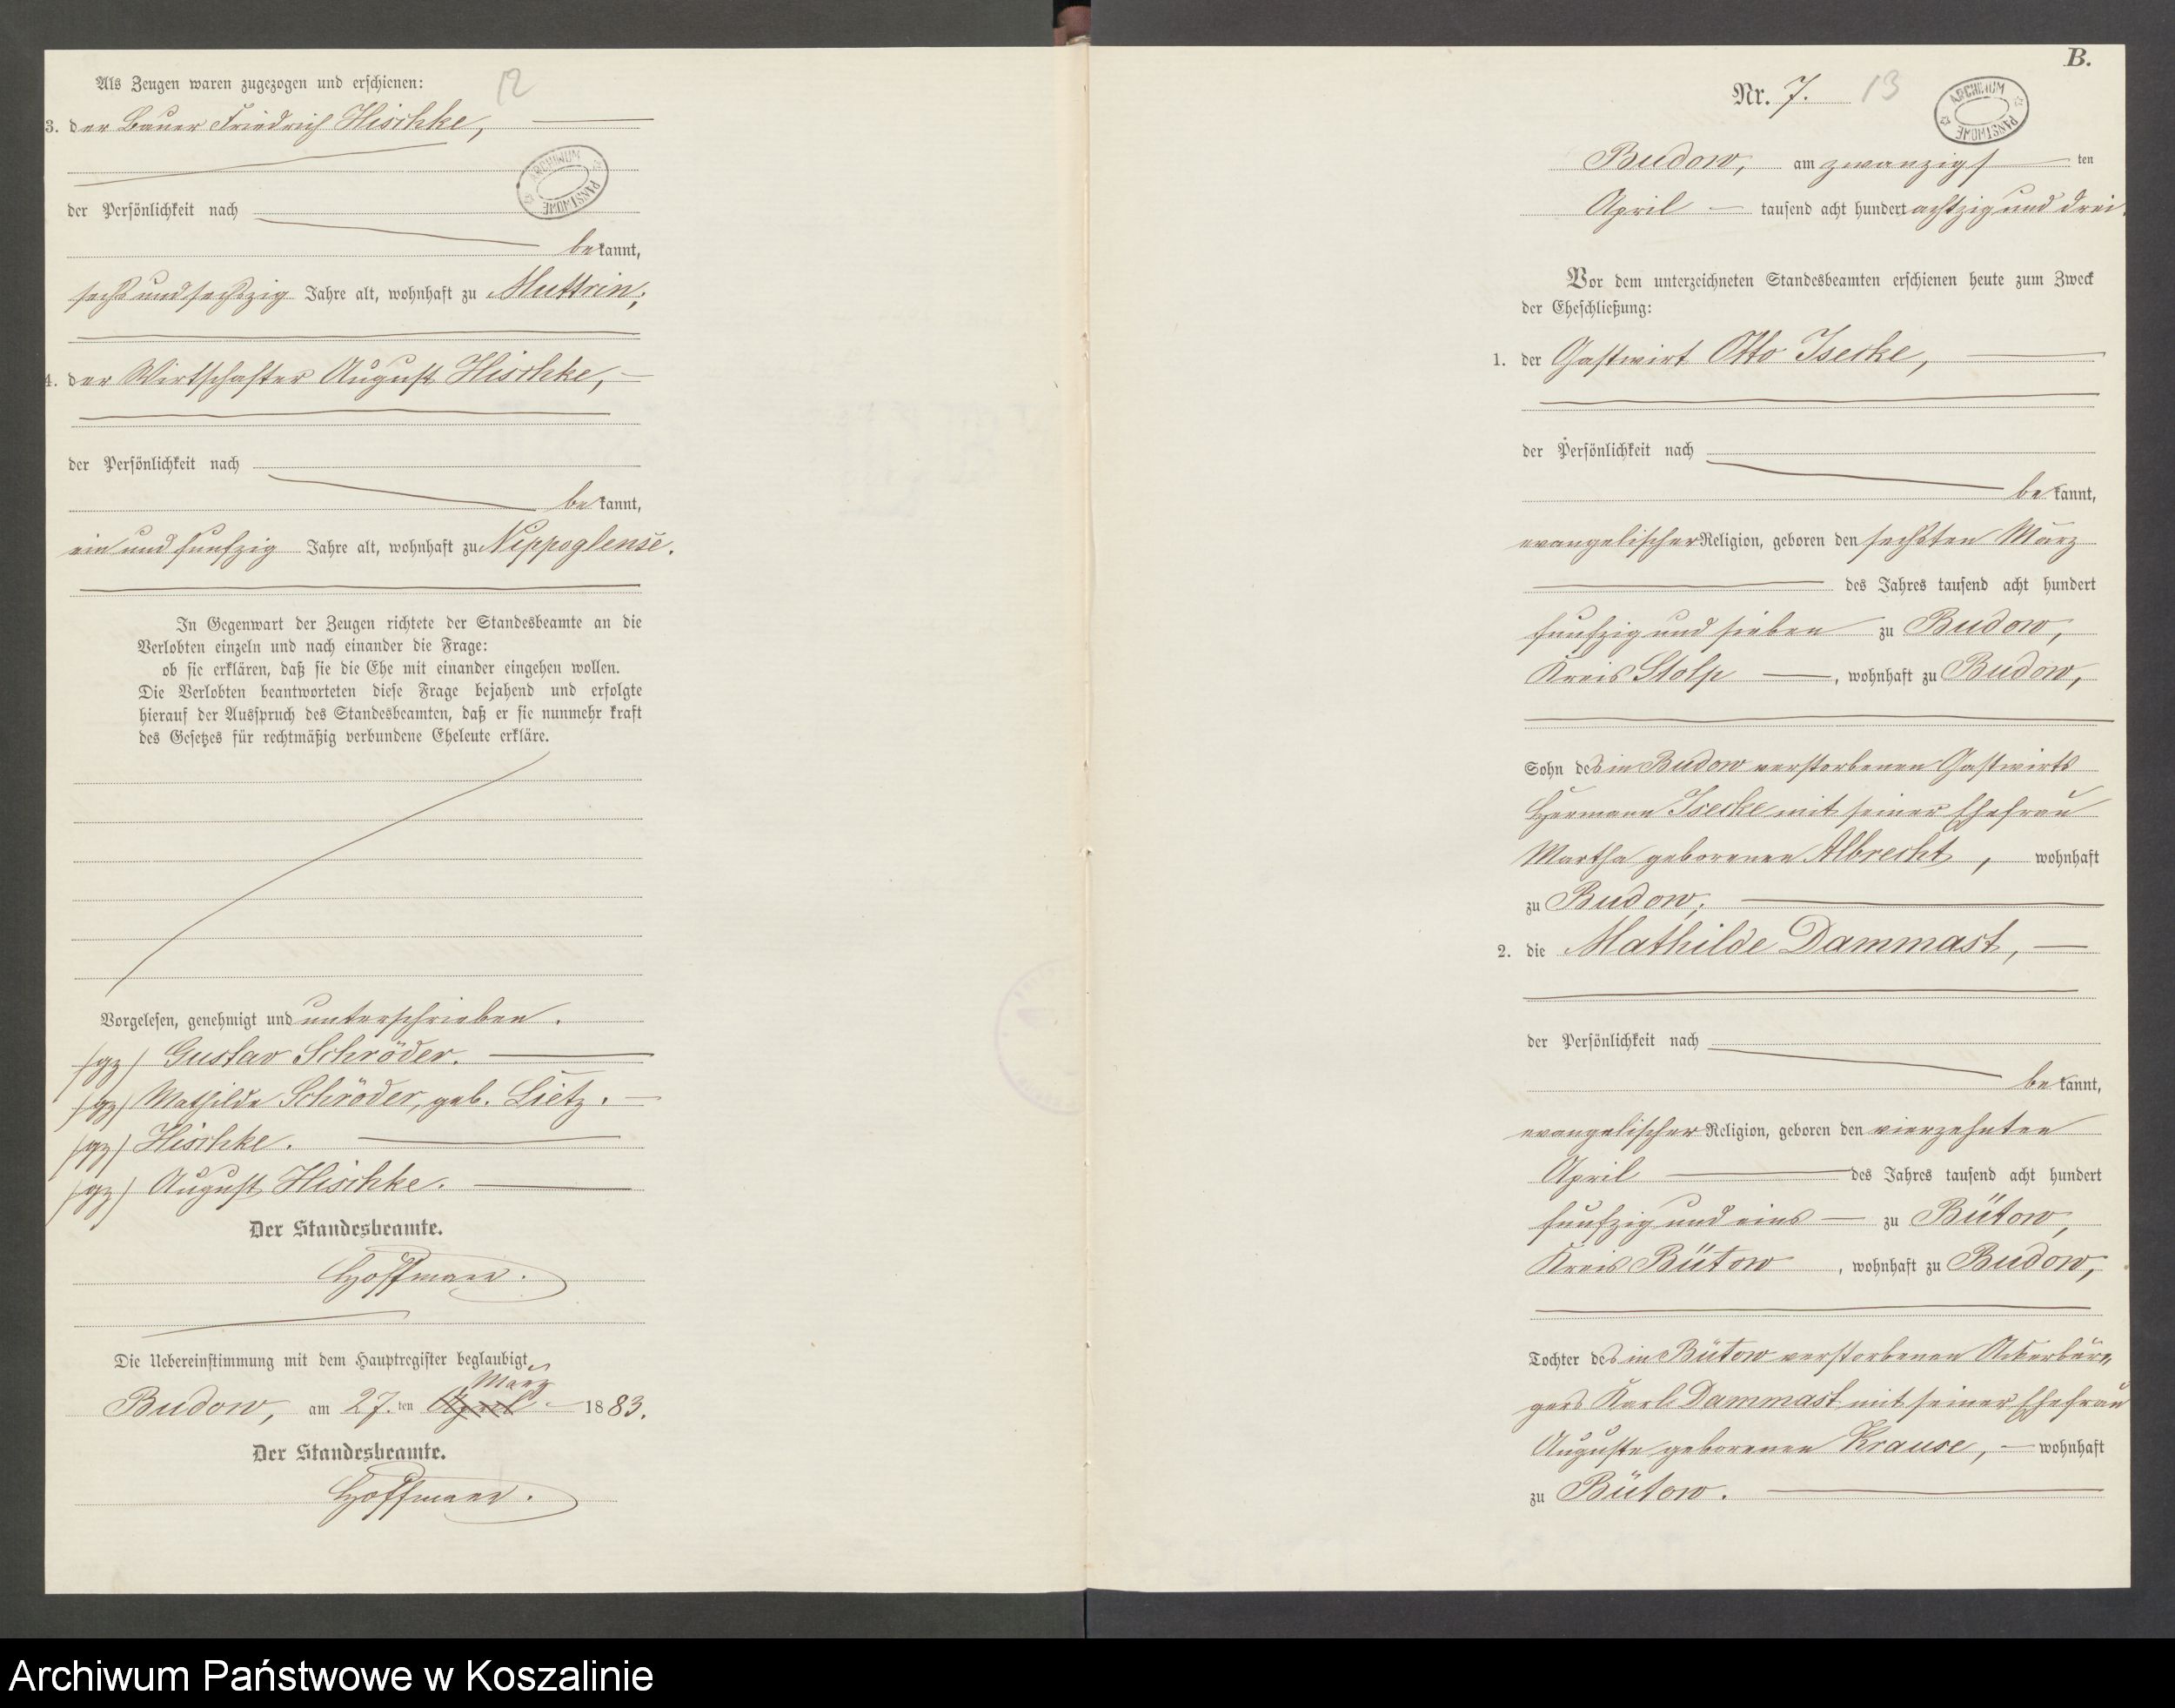 Als Zeugen waren zugezogen und erschienen:
12
3. der Bauer Friedrich Hischke,
ARCHIWUM PAŃSTWOWE
der Persönlichkeit nach
bekannt,
sechs und sechszig Jahre alt, wohnhaft zu Muttrin;
4. der Wirtschafter August Hischke,
der Persönlichkeit nach
bekannt,
ein und funfzig Jahre alt, wohnhaft zu Nippoglense.
In Gegenwart der Zeugen richtete der Standesbeamte an die
Verlobten einzeln und nach einander die Frage:
ob sie erklären, daß sie die Ehe mit einander eingehen wollen.
Die Verlobten beantworteten diese Frage bejahend und erfolgte
hierauf der Ausspruch des Standesbeamten, daß er sie nunmehr kraft
des Gesetzes für rechtmäßig verbundene Eheleute erkläre.
Vorgelesen, genehmigt und unterschrieben.
(gz) Gustav Schröder.
(gz) Mathilde Schröder, geb. Lietz.
(gz) Hischke.
(gz) August Hischke.
Der Standesbeamte.
Hoffmann.
Die Uebereinstimmung mit dem Hauptregister beglaubigt
März
Budow, am 27.ten April 1883.
Der Standesbeamte.
Hoffmann.
B.
Nr. 7.
13
ARCHIWUM PAŃSTWOWE
Budow, am zwanzigsten
April tausend acht hundert achtzig und drei.
Vor dem unterzeichneten Standesbeamten erschienen heute zum Zweck
der Eheschließung:
1. der Gastwirt Otto Isecke,
der Persönlichkeit nach
bekannt,
evangelischer Religion, geboren den sechsten März
des Jahres tausend acht hundert
funfzig und sieben zu Budow,
Kreis Stolp, wohnhaft zu Budow,
Sohn des in Budow verstorbenen Gastwirts
Hermann Isecke mit seiner Ehefrau
Martha geborenen Albrecht, wohnhaft
zu Budow;
2. die Mathilde Dammast,
der Persönlichkeit nach
bekannt,
evangelischer Religion, geboren den vierzehnten
April des Jahres tausend acht hundert
funfzig und eins zu Bütow,
Kreis Bütow, wohnhaft zu Budow,
Tochter des in Bütow verstorbenen Ackerbür„
gers Karl Dammast mit seiner Ehefrau
Auguste geborenen Krause, wohnhaft
zu Bütow.
Archiwum Państwowe w Koszalinie